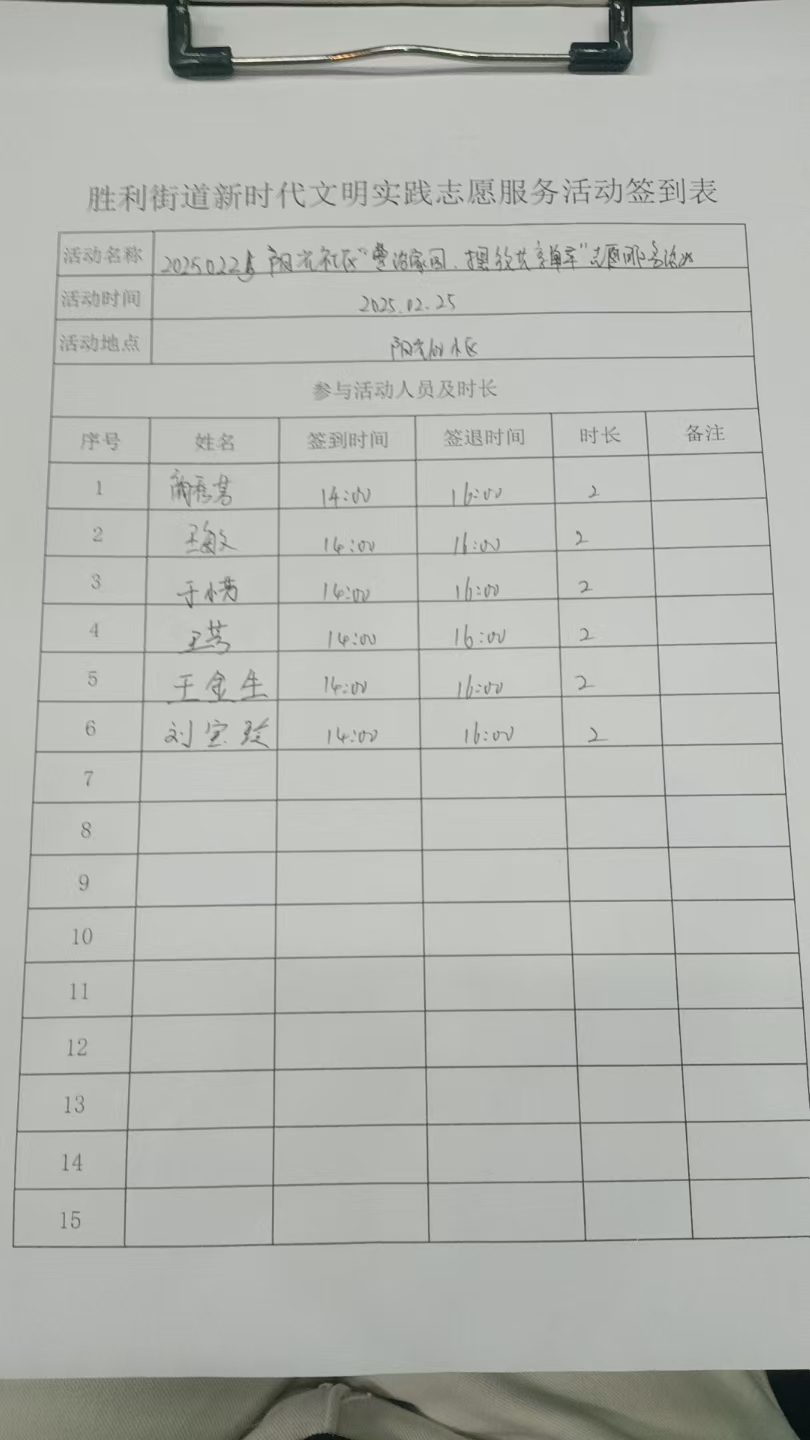 胜利街道新时代文明实践志愿服务活动签到表
活动名称 20250225阳光社区"家园、摆放共享单车"志愿服务活动
活动时间 2025.02.25
活动地点 阳光小区
参与活动人员及时长
序号 姓名 签到时间 签退时间 时长 备注
1 14:00 16:00 2
2 王敏 14:00 16:00 2
3 于小 14:00 16:00 2
4 王芳 14:00 16:00 2
5 王金生 14:00 16:00 2
6 刘宝玲 14:00 16:00 2
7
8
9
10
11
12
13
14
15